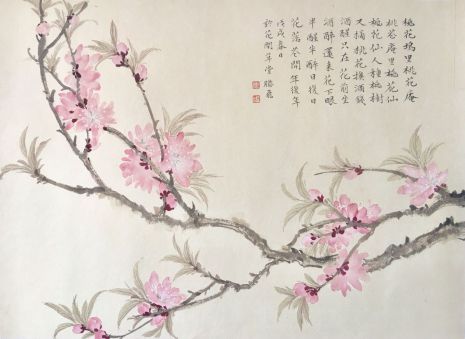 桃花塢里桃花庵
桃花庵里桃花仙
桃花仙人種桃樹
又摘桃花換酒錢
酒醒只在花前坐
酒醉還來花下眠
半醒半醉日復日
花落花開年復年
戊戌春日
於花間草堂